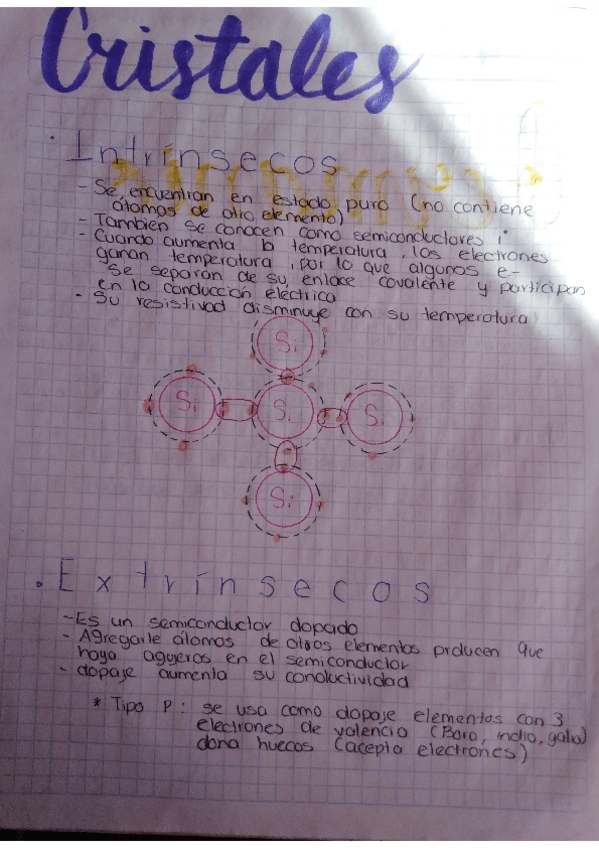 Cristales
. Intrínsecos
- Se encuentran en estado puro (no contiene
átomos de otro elemento)
- Tambien se conocen como semiconductores i
- Cuando aumenta la temperatura, los electrones
ganan temperatura, por lo que algunos e-
se separan de su enlace covalente y participan
en la conducción electrica
- Su resistivad disminuye con su temperatura
Si
Si
Si
Si
Si
. Extrínsecos
- Es un semiconductor dopado
- Agregarle átomos de otros elementos producen que
haya agujeros en el semiconductor
- dopaje aumenta su conductividad
* Tipo P: se usa como dopaje elementos con 3
electrones de valencia (Boro, indio, galio)
dona huecos (acepta electrones)